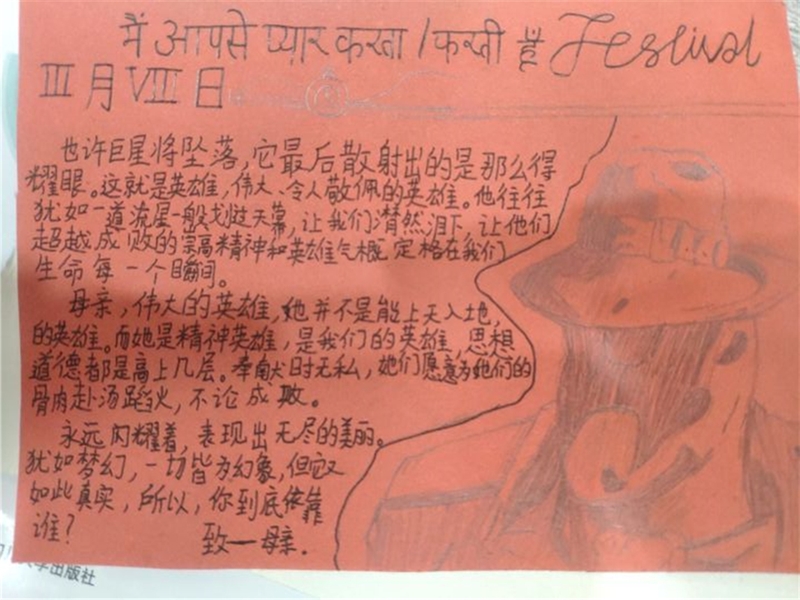 मैं आपसे प्यार करता / करती हैं Festival
III月VIII日
也许巨星将坠落,它最后散射出的是那么得
耀眼。这就是英雄,伟大、令人敬佩的英雄。他往往
犹如一道流星一般划过天幕,让我们潸然泪下,让他们
超越成败的崇高精神和英雄气概定格在我们
生命每一个瞬间。
母亲,伟大的英雄,她并不是能上天入地,
的英雄。而她是精神英雄,是我们的英雄,思想
道德都是高上几层。奉献时无私,她们愿意为她们的
骨肉赴汤蹈火,不论成败。
永远闪耀着,表现出无尽的美丽。
犹如梦幻,一切皆为幻象,但它又
如此真实,所以,你到底依靠
谁?
致一母亲.
学出版社